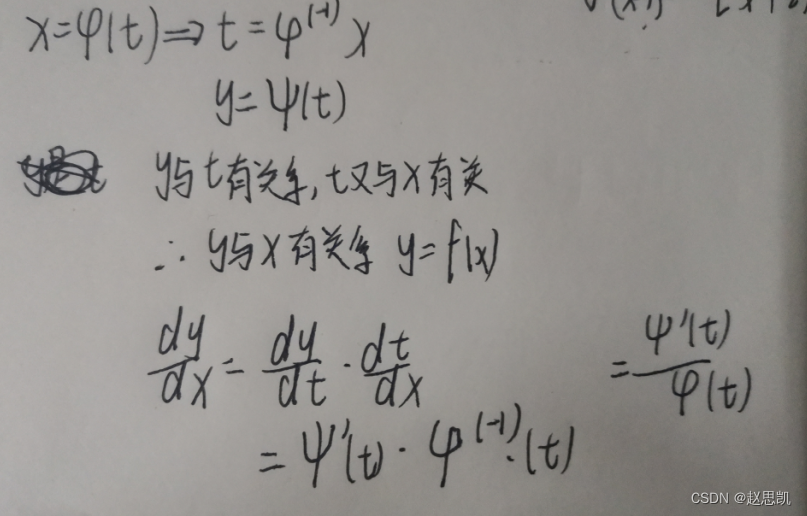 x=φ(t)⇒t=φ⁽⁻¹⁾x
y=ψ(t)
y与t有关系,t又与x有关
∴ y与x有关系 y=f(x)
dy/dx = dy/dt · dt/dx = ψ'(t)/φ(t)
=ψ'(t)·φ⁽⁻¹⁾·(t)
CSDN @赵思凯